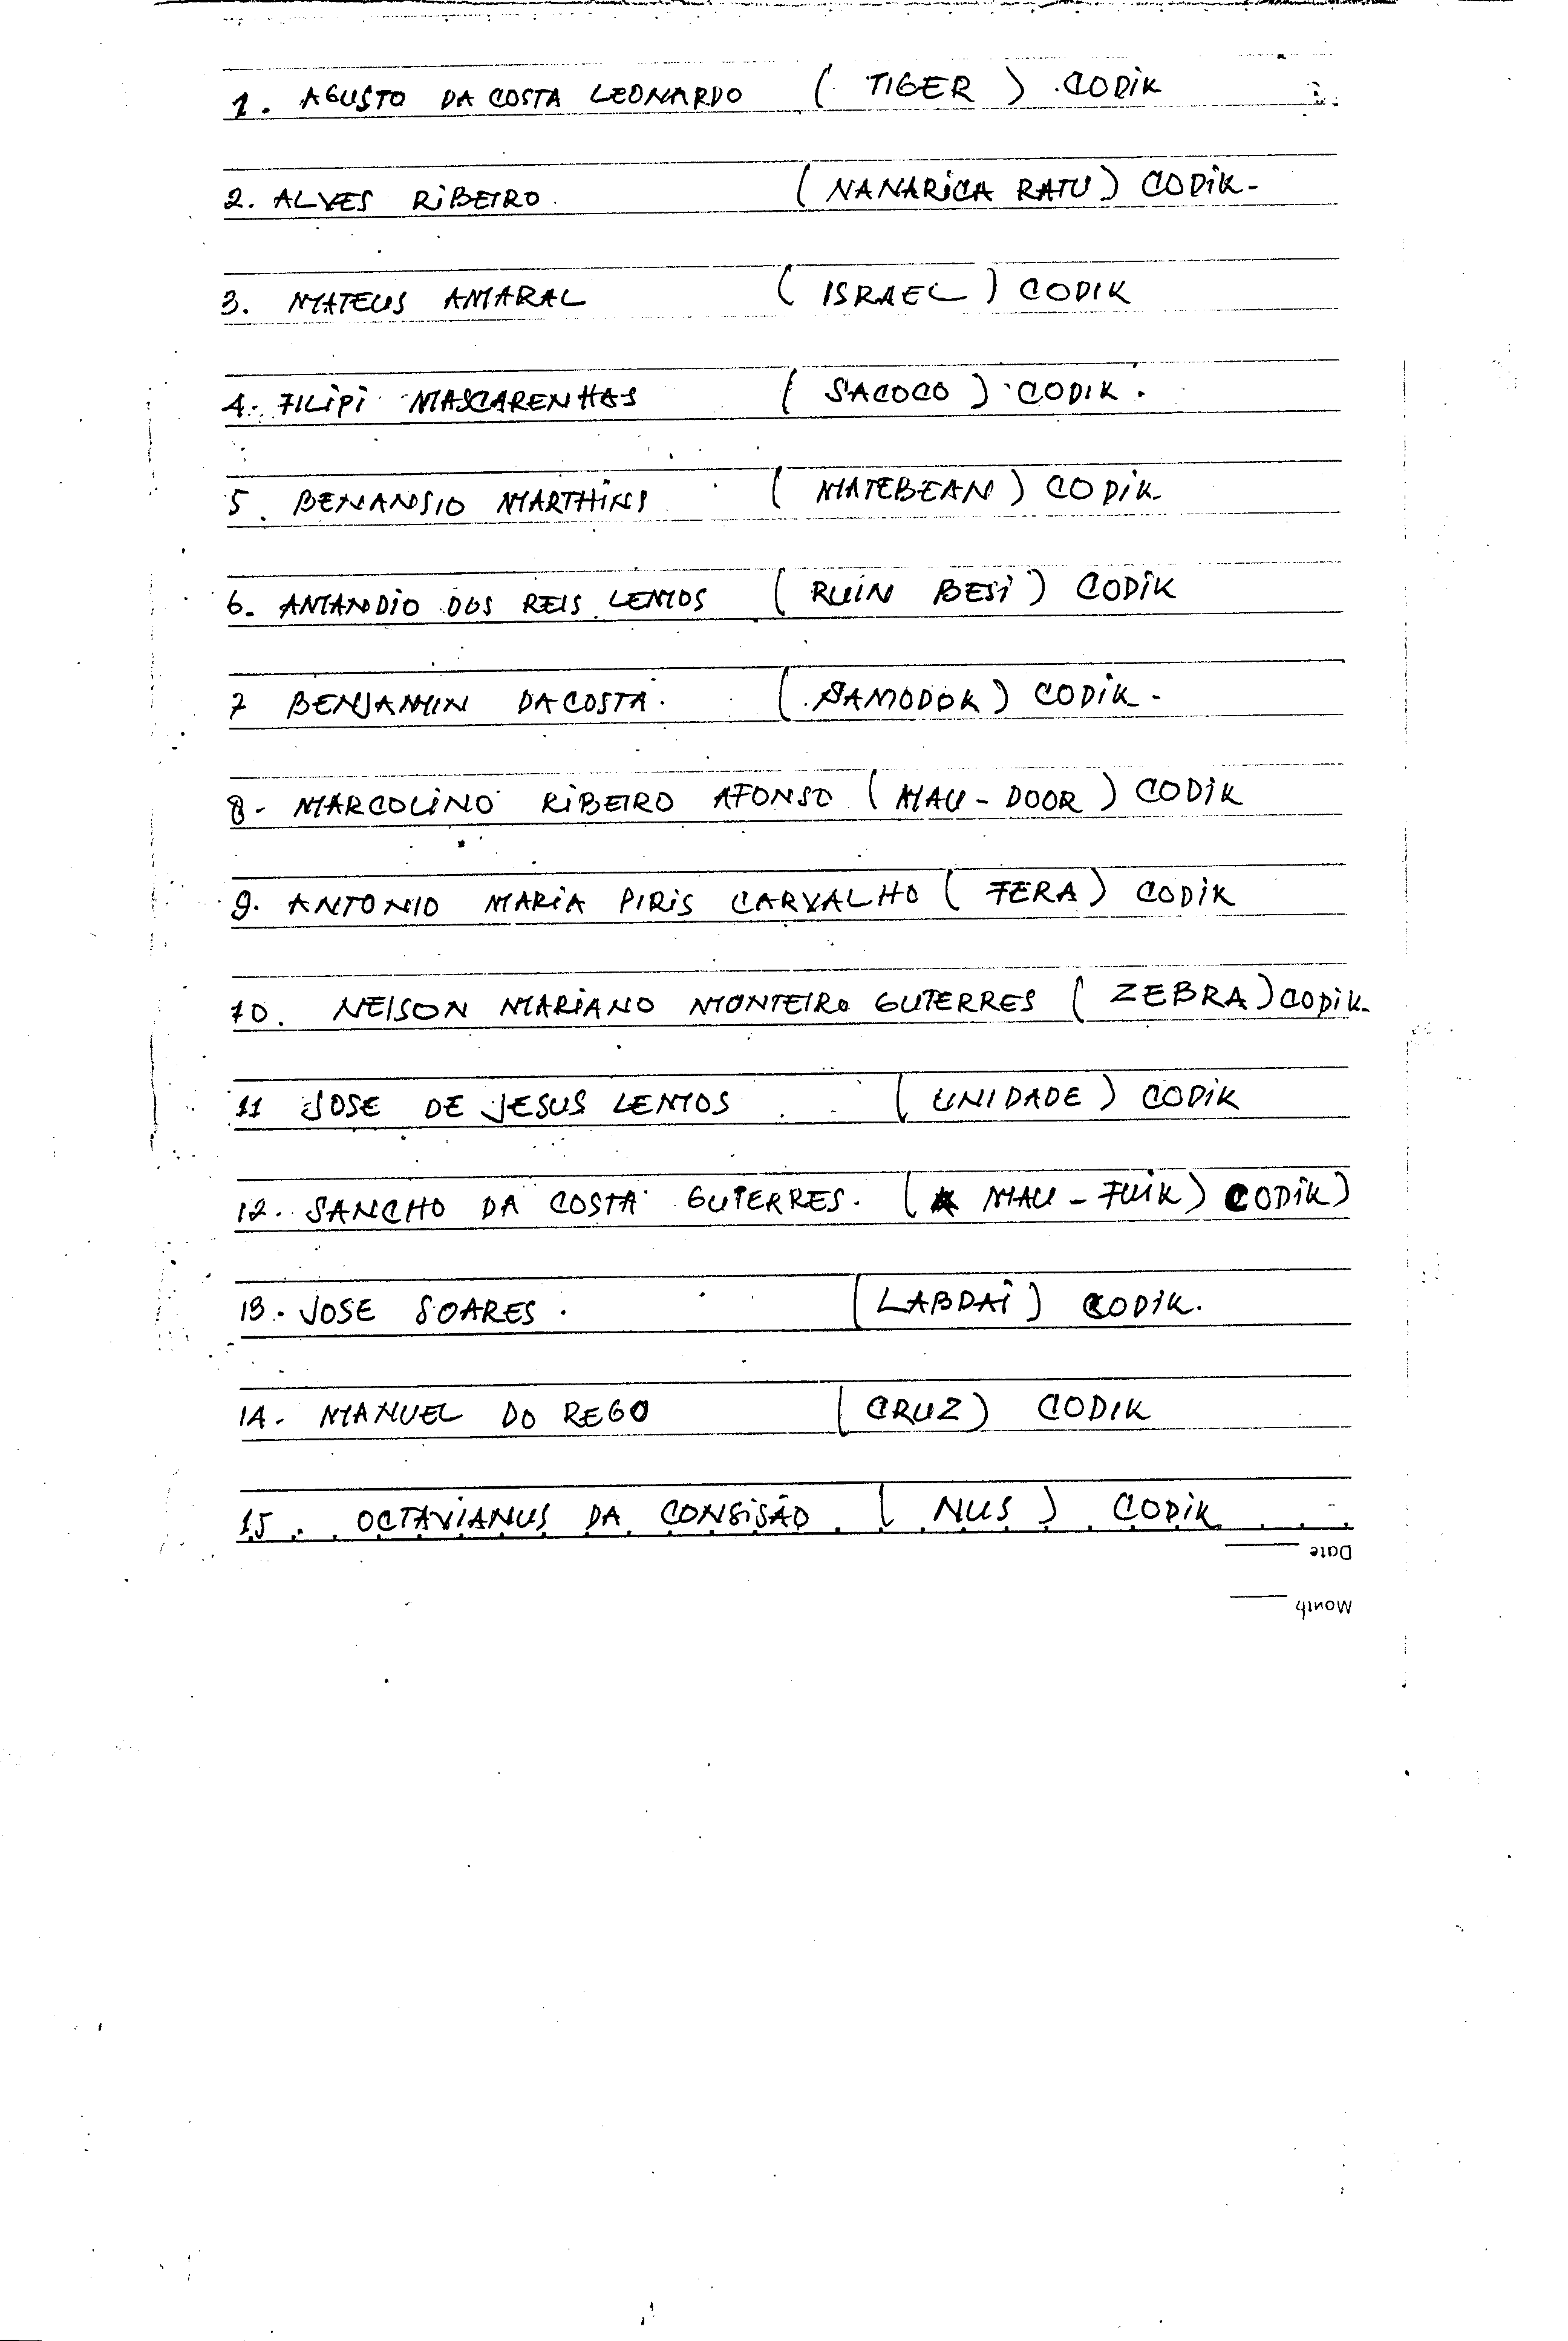 1. AGUSTO DA COSTA LEONARDO ( TIGER ) CODIK
2. ALVES RIBEIRO. (NANARICA RATU) CODIK-
3. MATEUS AMARAL ( ISRAEL ) CODIK
4. FILIPI MASCARENHAS ( SACOCO ) CODIK.
5. BENANSIO MARTHINS ( MATEBEAN ) CODIK
6- AMANDIO DOS REIS LEMOS ( RUIN BESI ) CODIK
7 BENJAMIN DACOSTA. ( SAMODOK ) CODIK-
8- MARCOLINO RIBEIRO AFONSO ( MAU - DOOR ) CODIK
9. ANTONIO MARIA PIRIS CARVALHO ( FERA ) CODIK
10. NELSON MARIANO MONTEIRO GUTERRES ( ZEBRA ) CODIK-
11 JOSE DE JESUS LEMOS ( UNIDADE ) CODIK
12. SANCHO DA COSTA GUTERRES. ( MAU - FUIK ) CODIK)
13. JOSE SOARES. ( LABDAI ) CODIK.
14- MANUEL DO REGO ( CRUZ ) CODIK
15. OCTAVIANUS DA CONSISÃO ( NUS ) CODIK
Date
Month